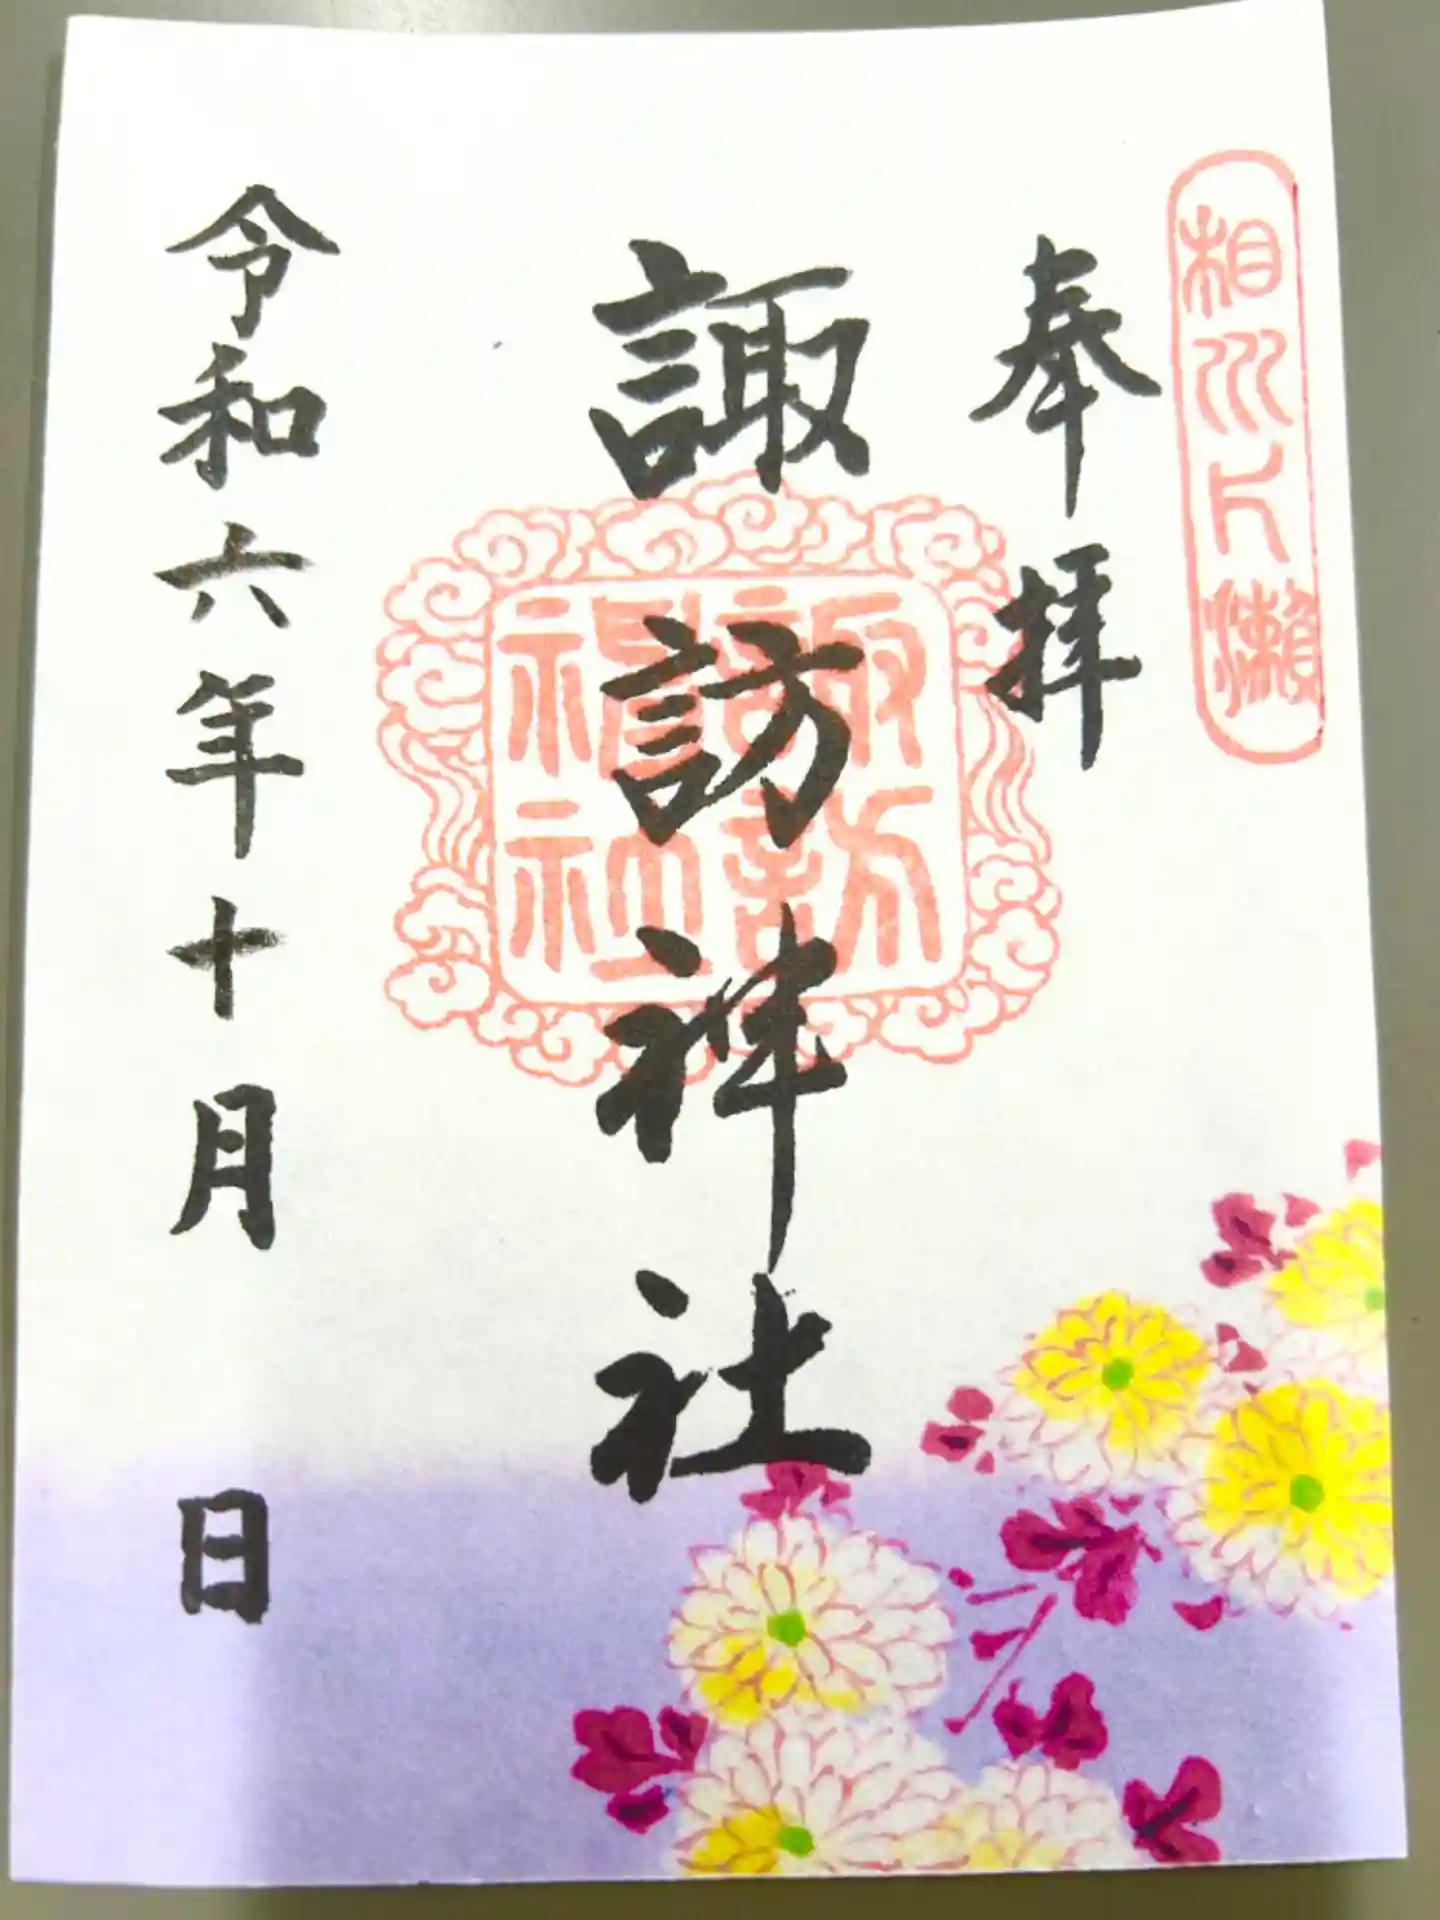 相州片瀬
奉拝
諏訪神社
諏訪神社
令和六年十月 日